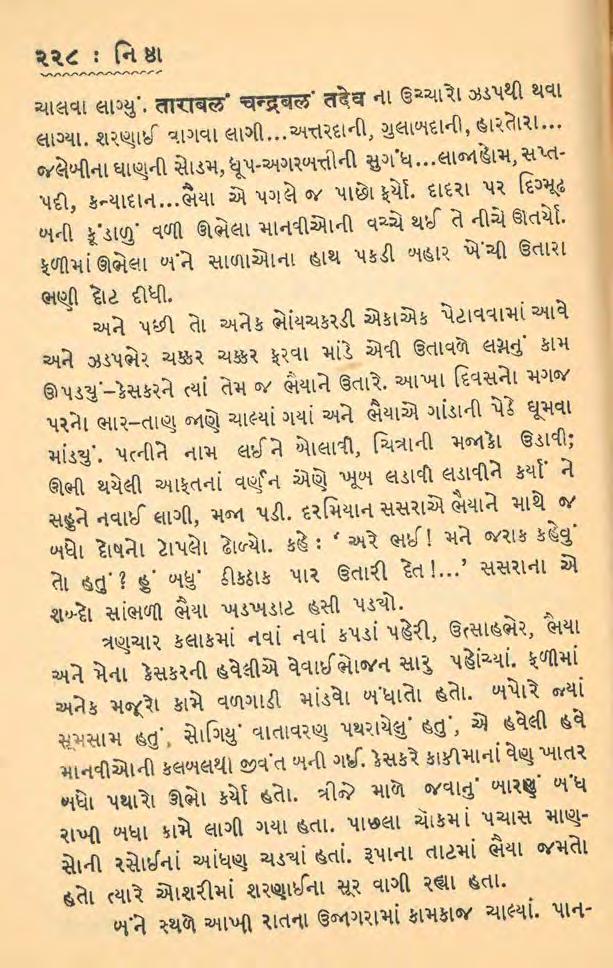 ૨૨૮ : નિષ્ઠા
ચાલવા લાગ્યું. ताराबलं चन्द्रबलं तदेव ના ઉચ્ચારો ઝડપથી થવા
લાગ્યા. શરણાઈ વાગવા લાગી...અત્તરદાની, ગુલાબદાની, હારતોરા...
જલેબીના ઘાણની સોડમ, ધૂપ-અગરબત્તીની સુગંધ...લાજાહોમ, સપ્ત-
પદી, કન્યાદાન...ભૈયા એ પગલે જ પાછો ફર્યો. દાદરા પર દિગ્મૂઢ
બની કૂંડાળું વળી ઊભેલા માનવીઓની વચ્ચે થઈ તે નીચે ઊતર્યો.
ફળીમાં ઊભેલા બંને સાળાઓના હાથ પકડી બહાર ખેંચી ઉતારા
ભણી દોટ દીધી.
અને પછી તો અનેક ભોંયચકરડી એકાએક પેટાવવામાં આવે
અને ઝડપભેર ચક્કર ચક્કર ફરવા માંડે એવી ઉતાવળે લગ્નનું કામ
ઊપડ્યું–કેસકરને ત્યાં તેમ જ ભૈયાને ઉતારે. આખા દિવસનો મગજ
પરનો ભાર–તાણ જાણે ચાલ્યાં ગયાં અને ભૈયાએ ગાંડાની પેઠે ઘૂમવા
માંડ્યું. પત્નીને નામ લઈને બોલાવી, ચિત્રાની મજાકો ઉડાવી;
ઊભી થયેલી આફતનાં વર્ણન એણે ખૂબ લડાવી લડાવીને કર્યાં ને
સહુને નવાઈ લાગી, મજા પડી. દરમિયાન સસરાએ ભૈયાને માથે જ
બધો દોષનો ટોપલો ઢોળ્યો. કહે : ‘ અરે ભઈ! મને જરાક કહેવું
તો હતું ? હું બધું ઠીકઠાક પાર ઉતારી દેત !...’ સસરાના એ
શબ્દો સાંભળી ભૈયા ખડખડાટ હસી પડ્યો.
ત્રણચાર કલાકમાં નવાં નવાં કપડાં પહેરી, ઉત્સાહભેર, ભૈયા
અને મેના કેસકરની હવેલીએ વેવાઈભોજન સારુ પહોંચ્યાં. ફળીમાં
અનેક મજૂરો કામે વળગાડી માંડવો બંધાતો હતો. બપોરે જ્યાં
સૂમસામ હતું, સોગિયું વાતાવરણ પથરાયેલું હતું, એ હવેલી હવે
માનવીઓની કલબલથી જીવંત બની ગઈ. કેસકરે કાકીમાનાં વેણ ખાતર
બધો પથારો ઊભો કર્યો હતો. ત્રીજે માળે જવાનું બારણું બંધ
રાખી બધા કામે લાગી ગયા હતા. પાછલા ચોકમાં પચાસ માણ-
સોની રસોઈનાં આંધણ ચડ્યાં હતાં. રૂપાના તાટમાં ભૈયા જમતો
હતો ત્યારે ઓશરીમાં શરણાઈના સૂર વાગી રહ્યા હતા.
બંને સ્થળે આખી રાતના ઉજાગરામાં કામકાજ ચાલ્યાં. પાન-